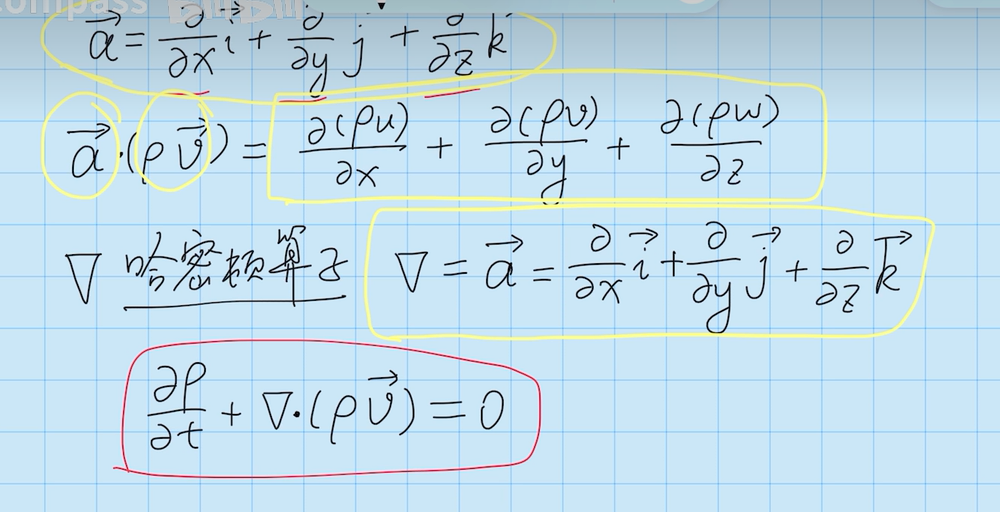 compass BiliBili
a⃗ = ∂/∂x i⃗ + ∂/∂y j + ∂/∂z k
a⃗·(ρv⃗) = ∂(ρu)/∂x + ∂(ρv)/∂y + ∂(ρw)/∂z
∇ 哈密顿算子 ∇ = a⃗ = ∂/∂x i⃗ + ∂/∂y j⃗ + ∂/∂z k⃗
∂ρ/∂t + ∇·(ρv⃗) = 0